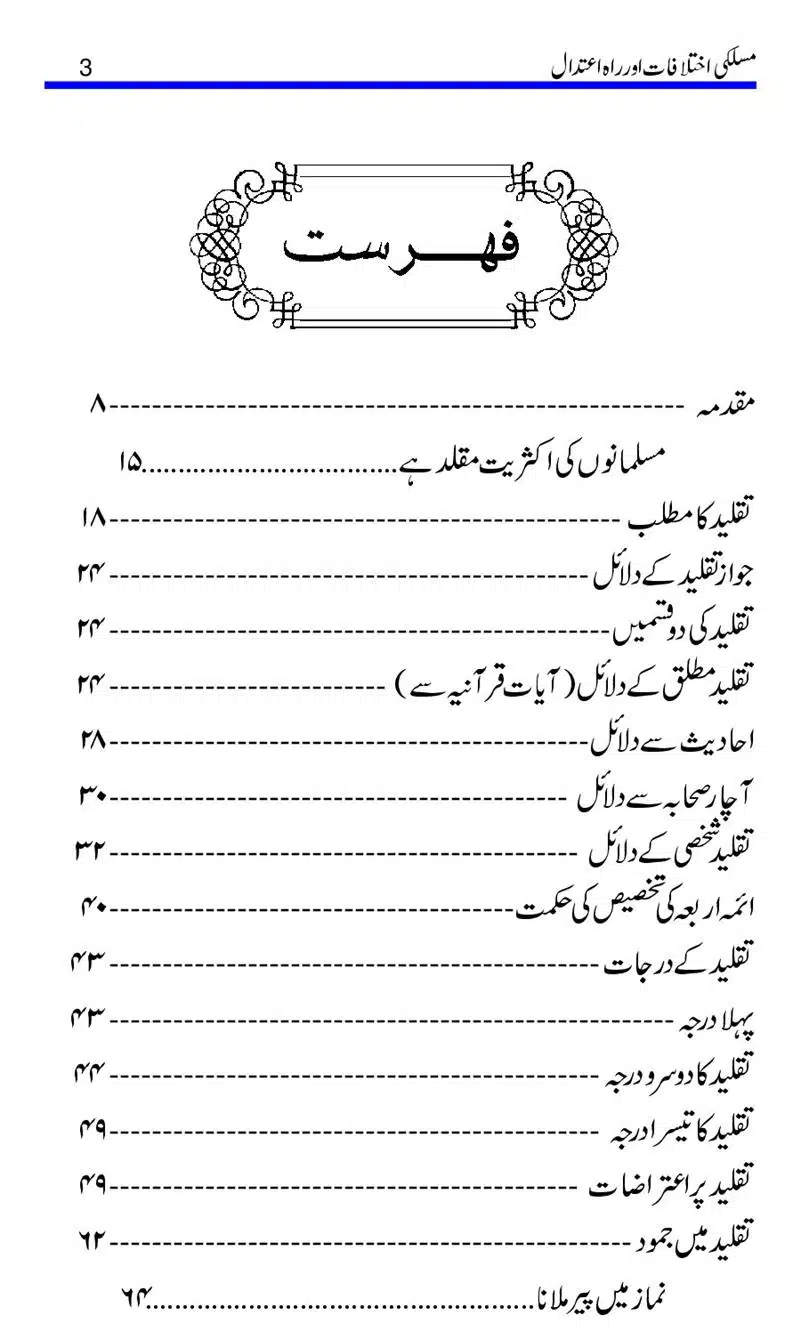 مسلکی اختلافات اور راہ اعتدال 3
فہرست
مقدمہ ------------------------------------------------------ ۸
مسلمانوں کی اکثریت مقلد ہے...................................۱۵
تقلید کا مطلب ------------------------------------------------ ۱۸
جواز تقلید کے دلائل --------------------------------------------- ۲۴
تقلید کی دو قسمیں ----------------------------------------------- ۲۴
تقلید مطلق کے دلائل (آیات قرآنیہ سے) -------------------------- ۲۴
احادیث سے دلائل --------------------------------------------- ۲۸
آچار صحابہ سے دلائل ------------------------------------------- ۳۰
تقلید شخصی کے دلائل -------------------------------------------- ۳۲
ائمہ اربعہ کی تخصیص کی حکمت -------------------------------------- ۴۰
تقلید کے درجات ---------------------------------------------- ۴۳
پہلا درجہ ----------------------------------------------------- ۴۳
تقلید کا دوسرو درجہ ---------------------------------------------- ۴۴
تقلید کا تیسرا درجہ ---------------------------------------------- ۴۹
تقلید پر اعتراضات -------------------------------------------- ۴۹
تقلید میں جمود ------------------------------------------------- ۶۲
نماز میں پیر ملانا.....................................................۶۴